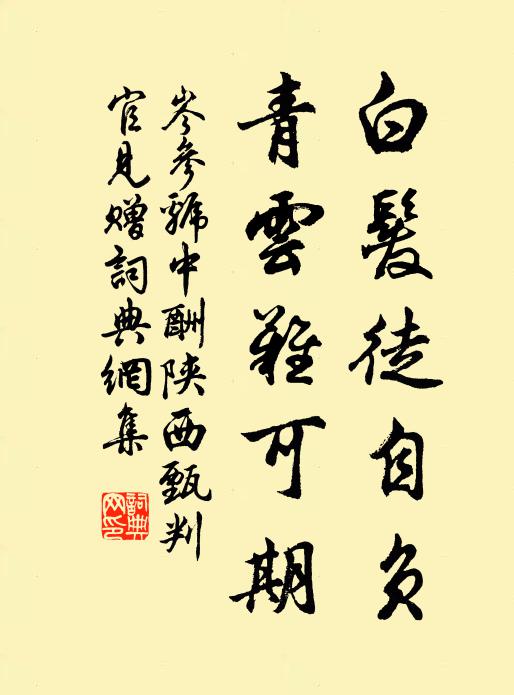 白髮徒自負
青雲難可期
岑參虢中酬陝西甄判
官見贈詞典網集
詞典
网印